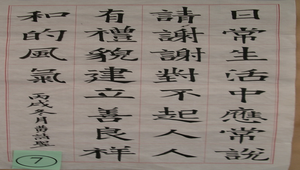 日常生活中應常說
請謝謝對不起人人
有禮貌建立善良祥
和的風氣
丙戌冬月
7